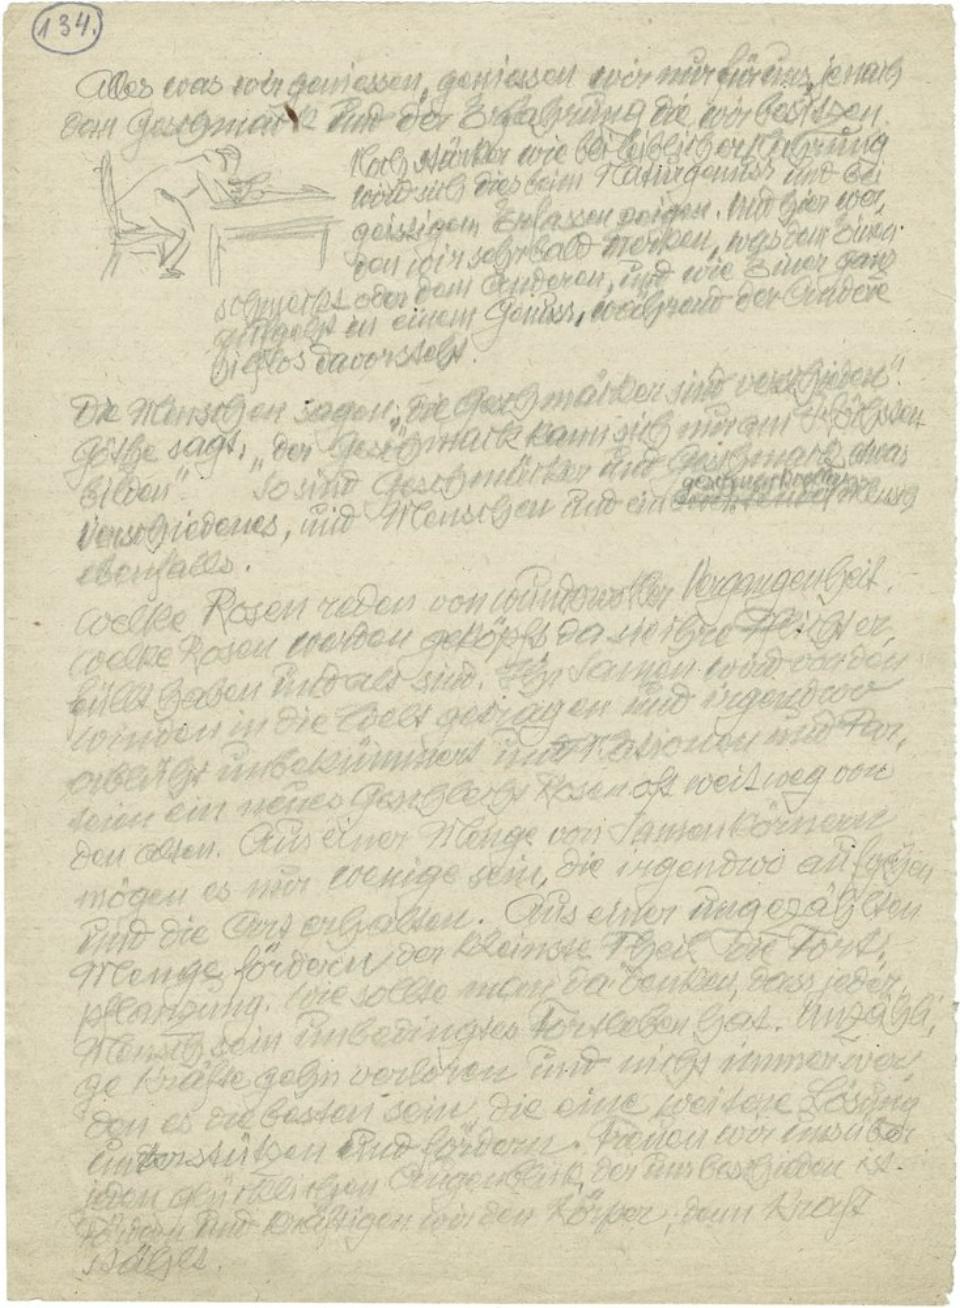 134.
Alles was wir geniessen, geniessen wir nur für uns, je nach
dem Geschmack und der Erfahrung die wir besitzen.
Noch stärker wie bei leiblicher Nahrung
wird sich dies beim Naturgenuss und bei
geistigem Erfassen zeigen. Und hier wer,
den wir sehr bald merken, was dem Einen
schmeckt oder dem Anderen, und wie Einer ganz
aufgeht in einem Genuss, während der Andere
hilflos davorsteht.
Die Menschen sagen, „die Geschmäcker sind verschieden".
Göthe sagt, „der Geschmack kann sich nur am
bilden". So sind Geschmäcker und Geschmack etwas
Verschiedenes, und Menschen und ein Mensch
ebenfalls.
Welke Rosen reden von wundervoller Vergangenheit.
Welke Rosen werden geköpft da sie ihre Pflicht er,
füllt haben und alt sind. Ihr Samen wird von den
Winden in die Welt getragen und irgendwo
erblüht unbekümmert um Nationen und Par,
teien ein neues Geschlecht Rosen oft weit weg von
den alten. Aus einer Menge von Samenkörnern
mögen es nur wenige sein, die irgendwo aufgehen
und die Art erhalten. Aus einer ungezählten
Menge fördern der kleinste Theil die Fort,
pflanzung. Wie sollte man da denken, dass jeder
Mensch sein unbedingtes Fortleben hat. Unzähli,
ge Kräfte gehn verloren und nicht immer wer,
den es die besten sein, die eine weitere Lösung
unterstützen und fördern. Freuen wir uns über
jeden glücklichen Augenblick der uns beschieden ist.
und kräftigen wir den Körper, denn Kraft
stählt.